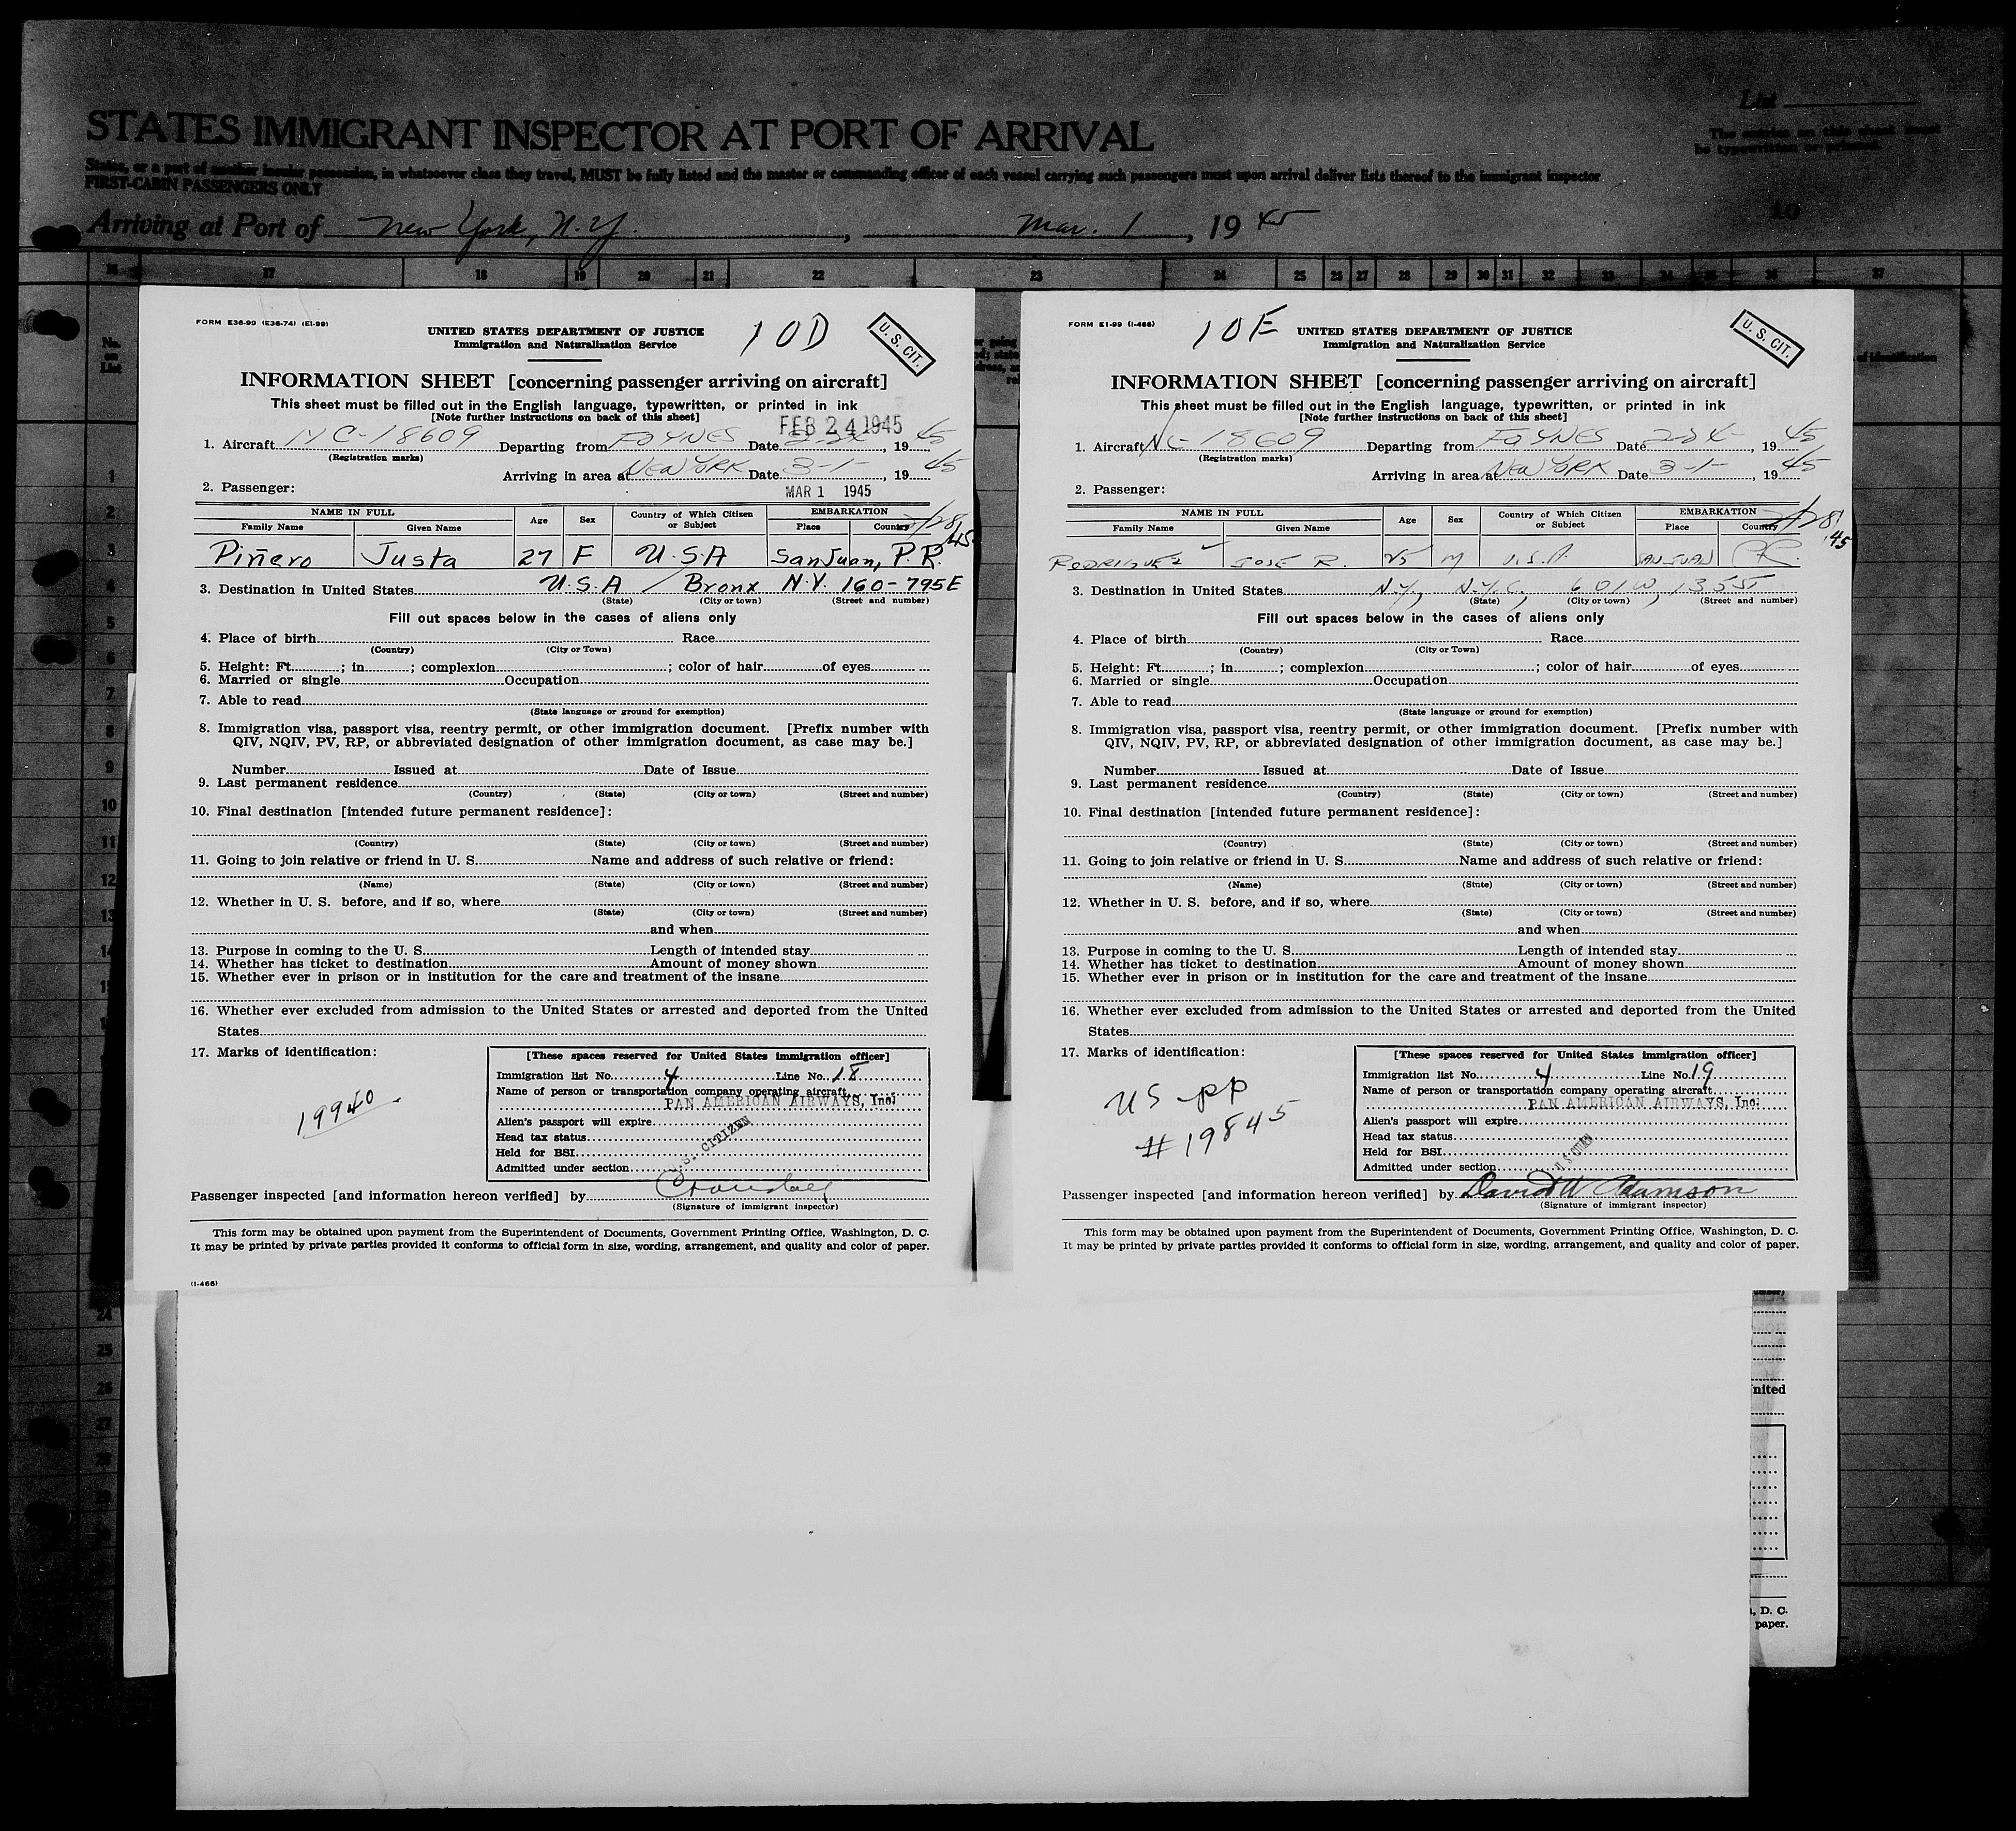 List
The entries on this sheet must
be typewritten or printed.
STATES IMMIGRANT INSPECTOR AT PORT OF ARRIVAL
States, or a part of another insular possession, in whatsoever class they travel, MUST be fully listed and the master or commanding officer of each vessel carrying such passengers must upon arrival deliver lists thereof to the immigrant inspector
FIRST-CABIN PASSENGERS ONLY
Arriving at Port of New York, N.Y., Mar. 1, 19 45
10
16 17 18 19 20 21 22 23 24 25 26 27 28 29 30 31 32 33 34 35 36 37
No.
on
List
of identification
1
2
3
4
5
6
7
8
9
10
11
12
13
14
24
25
26
27
FORM E36-99 (E36-74) (E1-99)
10D
U. S. CIT.
UNITED STATES DEPARTMENT OF JUSTICE
Immigration and Naturalization Service
INFORMATION SHEET [concerning passenger arriving on aircraft]
This sheet must be filled out in the English language, typewritten, or printed in ink
[Note further instructions on back of this sheet]
FEB 24 1945
1. Aircraft NC-18609 Departing from FOYNES Date 2-24, 19 45
(Registration marks)
Arriving in area at NEW YORK Date 3-1-, 19 45
MAR 1 1945
2. Passenger:
NAME IN FULL Age Sex Country of Which Citizen or Subject EMBARKATION
Family Name Given Name Place Country
2/28/45
Piñero Justa 27 F U.S.A San Juan, P.R.
3. Destination in United States U.S.A / Bronx N.Y. 160-795E
(State) (City or town) (Street and number)
Fill out spaces below in the cases of aliens only
4. Place of birth Race
(Country) (City or Town)
5. Height: Ft. ; in ; complexion ; color of hair of eyes
6. Married or single Occupation
7. Able to read
(State language or ground for exemption)
8. Immigration visa, passport visa, reentry permit, or other immigration document. [Prefix number with
QIV, NQIV, PV, RP, or abbreviated designation of other immigration document, as case may be.]
Number Issued at Date of Issue
9. Last permanent residence
(Country) (State) (City or town) (Street and number)
10. Final destination [intended future permanent residence]:
(Country) (State) (City or town) (Street and number)
11. Going to join relative or friend in U. S. Name and address of such relative or friend:
(Name) (State) (City or town) (Street and number)
12. Whether in U. S. before, and if so, where
(State) (City or town) (Street and number)
and when
13. Purpose in coming to the U. S. Length of intended stay
14. Whether has ticket to destination Amount of money shown
15. Whether ever in prison or in institution for the care and treatment of the insane
16. Whether ever excluded from admission to the United States or arrested and deported from the United
States
17. Marks of identification:
19940
[These spaces reserved for United States immigration officer]
Immigration list No. 4 Line No. 18
Name of person or transportation company operating aircraft
PAN AMERICAN AIRWAYS, Inc.
Alien's passport will expire
Head tax status
Held for BSI
Admitted under section
U.S. CITIZEN
Passenger inspected [and information hereon verified] by
(Signature of immigrant inspector)
This form may be obtained upon payment from the Superintendent of Documents, Government Printing Office, Washington, D. C.
It may be printed by private parties provided it conforms to official form in size, wording, arrangement, and quality and color of paper.
(1-466)
FORM E1-99 (1-466)
10E
U. S. CIT.
UNITED STATES DEPARTMENT OF JUSTICE
Immigration and Naturalization Service
INFORMATION SHEET [concerning passenger arriving on aircraft]
This sheet must be filled out in the English language, typewritten, or printed in ink
[Note further instructions on back of this sheet]
1. Aircraft NC-18609 Departing from FOYNES Date 2-24-, 19 45
(Registration marks)
Arriving in area at NEW YORK Date 3-1-, 19 45
2. Passenger:
NAME IN FULL Age Sex Country of Which Citizen or Subject EMBARKATION
Family Name Given Name Place Country
2/28/45
RODRIGUEZ JOSE R. 25 M U.S.A. SAN JUAN P.R.
3. Destination in United States N.Y., N.Y.C., 601 W, 135 ST
(State) (City or town) (Street and number)
Fill out spaces below in the cases of aliens only
4. Place of birth Race
(Country) (City or Town)
5. Height: Ft. ; in ; complexion ; color of hair of eyes
6. Married or single Occupation
7. Able to read
(State language or ground for exemption)
8. Immigration visa, passport visa, reentry permit, or other immigration document. [Prefix number with
QIV, NQIV, PV, RP, or abbreviated designation of other immigration document, as case may be.]
Number Issued at Date of Issue
9. Last permanent residence
(Country) (State) (City or town) (Street and number)
10. Final destination [intended future permanent residence]:
(Country) (State) (City or town) (Street and number)
11. Going to join relative or friend in U. S. Name and address of such relative or friend:
(Name) (State) (City or town) (Street and number)
12. Whether in U. S. before, and if so, where
(State) (City or town) (Street and number)
and when
13. Purpose in coming to the U. S. Length of intended stay
14. Whether has ticket to destination Amount of money shown
15. Whether ever in prison or in institution for the care and treatment of the insane
16. Whether ever excluded from admission to the United States or arrested and deported from the United
States
17. Marks of identification:
US pp
# 19845
[These spaces reserved for United States immigration officer]
Immigration list No. 4 Line No. 19
Name of person or transportation company operating aircraft
PAN AMERICAN AIRWAYS, Inc.
Alien's passport will expire
Head tax status
Held for BSI
Admitted under section
U.S. CITIZEN
Passenger inspected [and information hereon verified] by David W Adamson
(Signature of immigrant inspector)
This form may be obtained upon payment from the Superintendent of Documents, Government Printing Office, Washington, D. C.
It may be printed by private parties provided it conforms to official form in size, wording, arrangement, and quality and color of paper.
nited
, D. C.
paper.